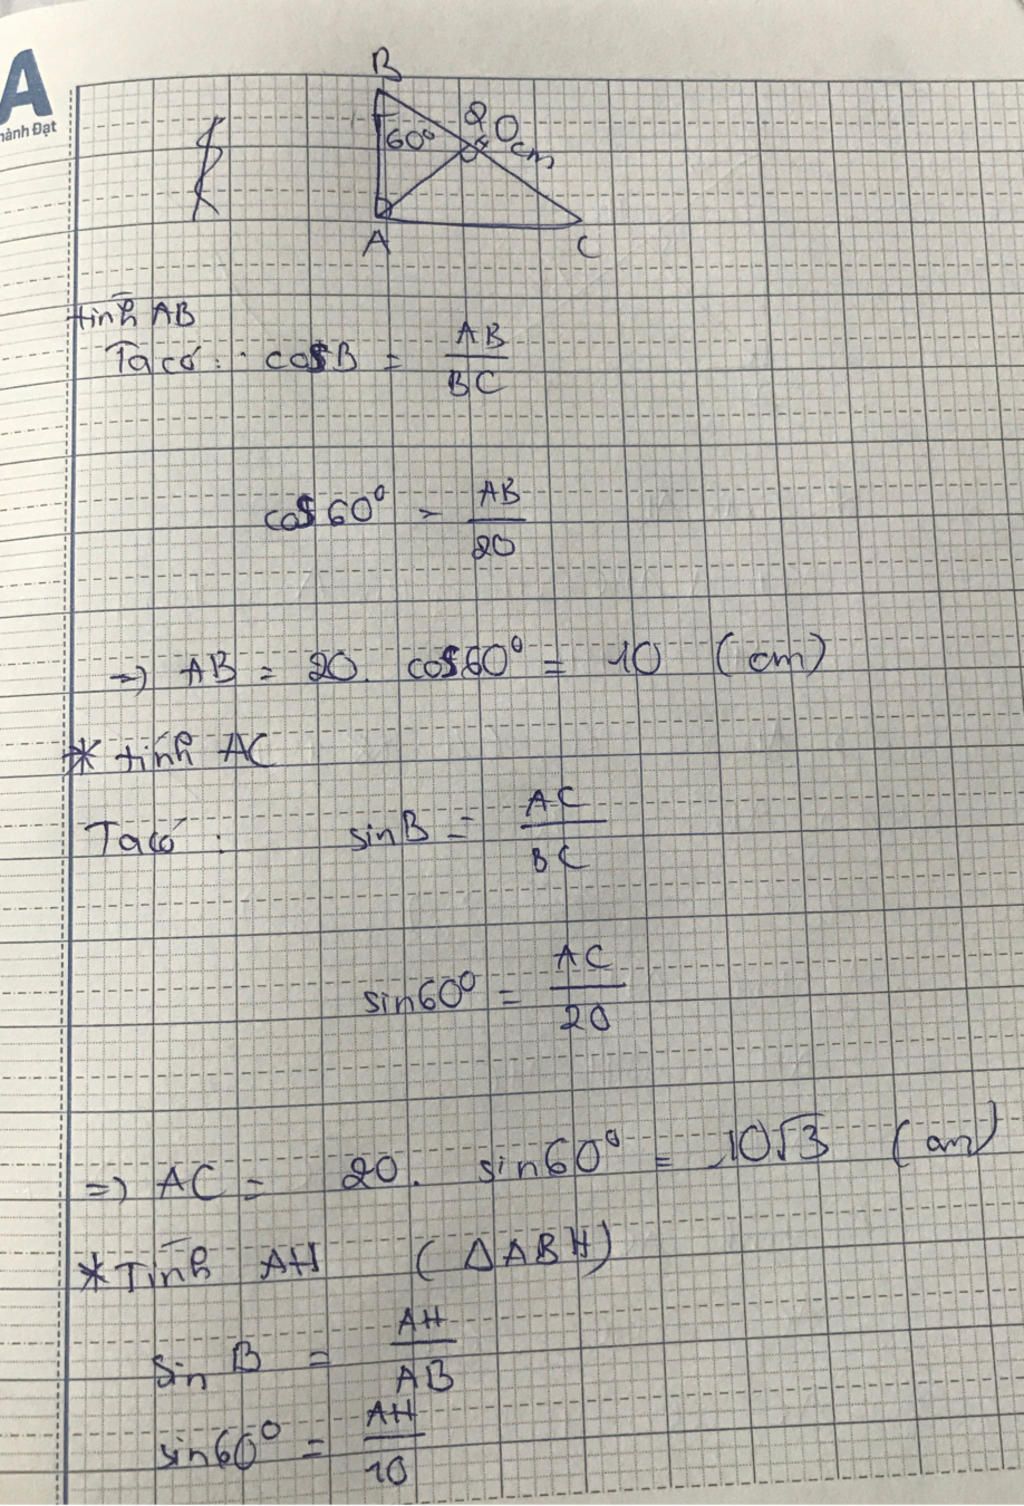 A
hành Đạt
B
60° 20cm
H
A C
tính AB
Ta có: cosB = AB/BC
cos60° = AB/20
=> AB = 20. cos60° = 10 (cm)
* tính AC
Ta có: sinB = AC/BC
sin60° = AC/20
=> AC = 20. sin60° = 10√3 (cm)
* Tính AH (ΔABH)
Sin B = AH/AB
sin60° = AH/10